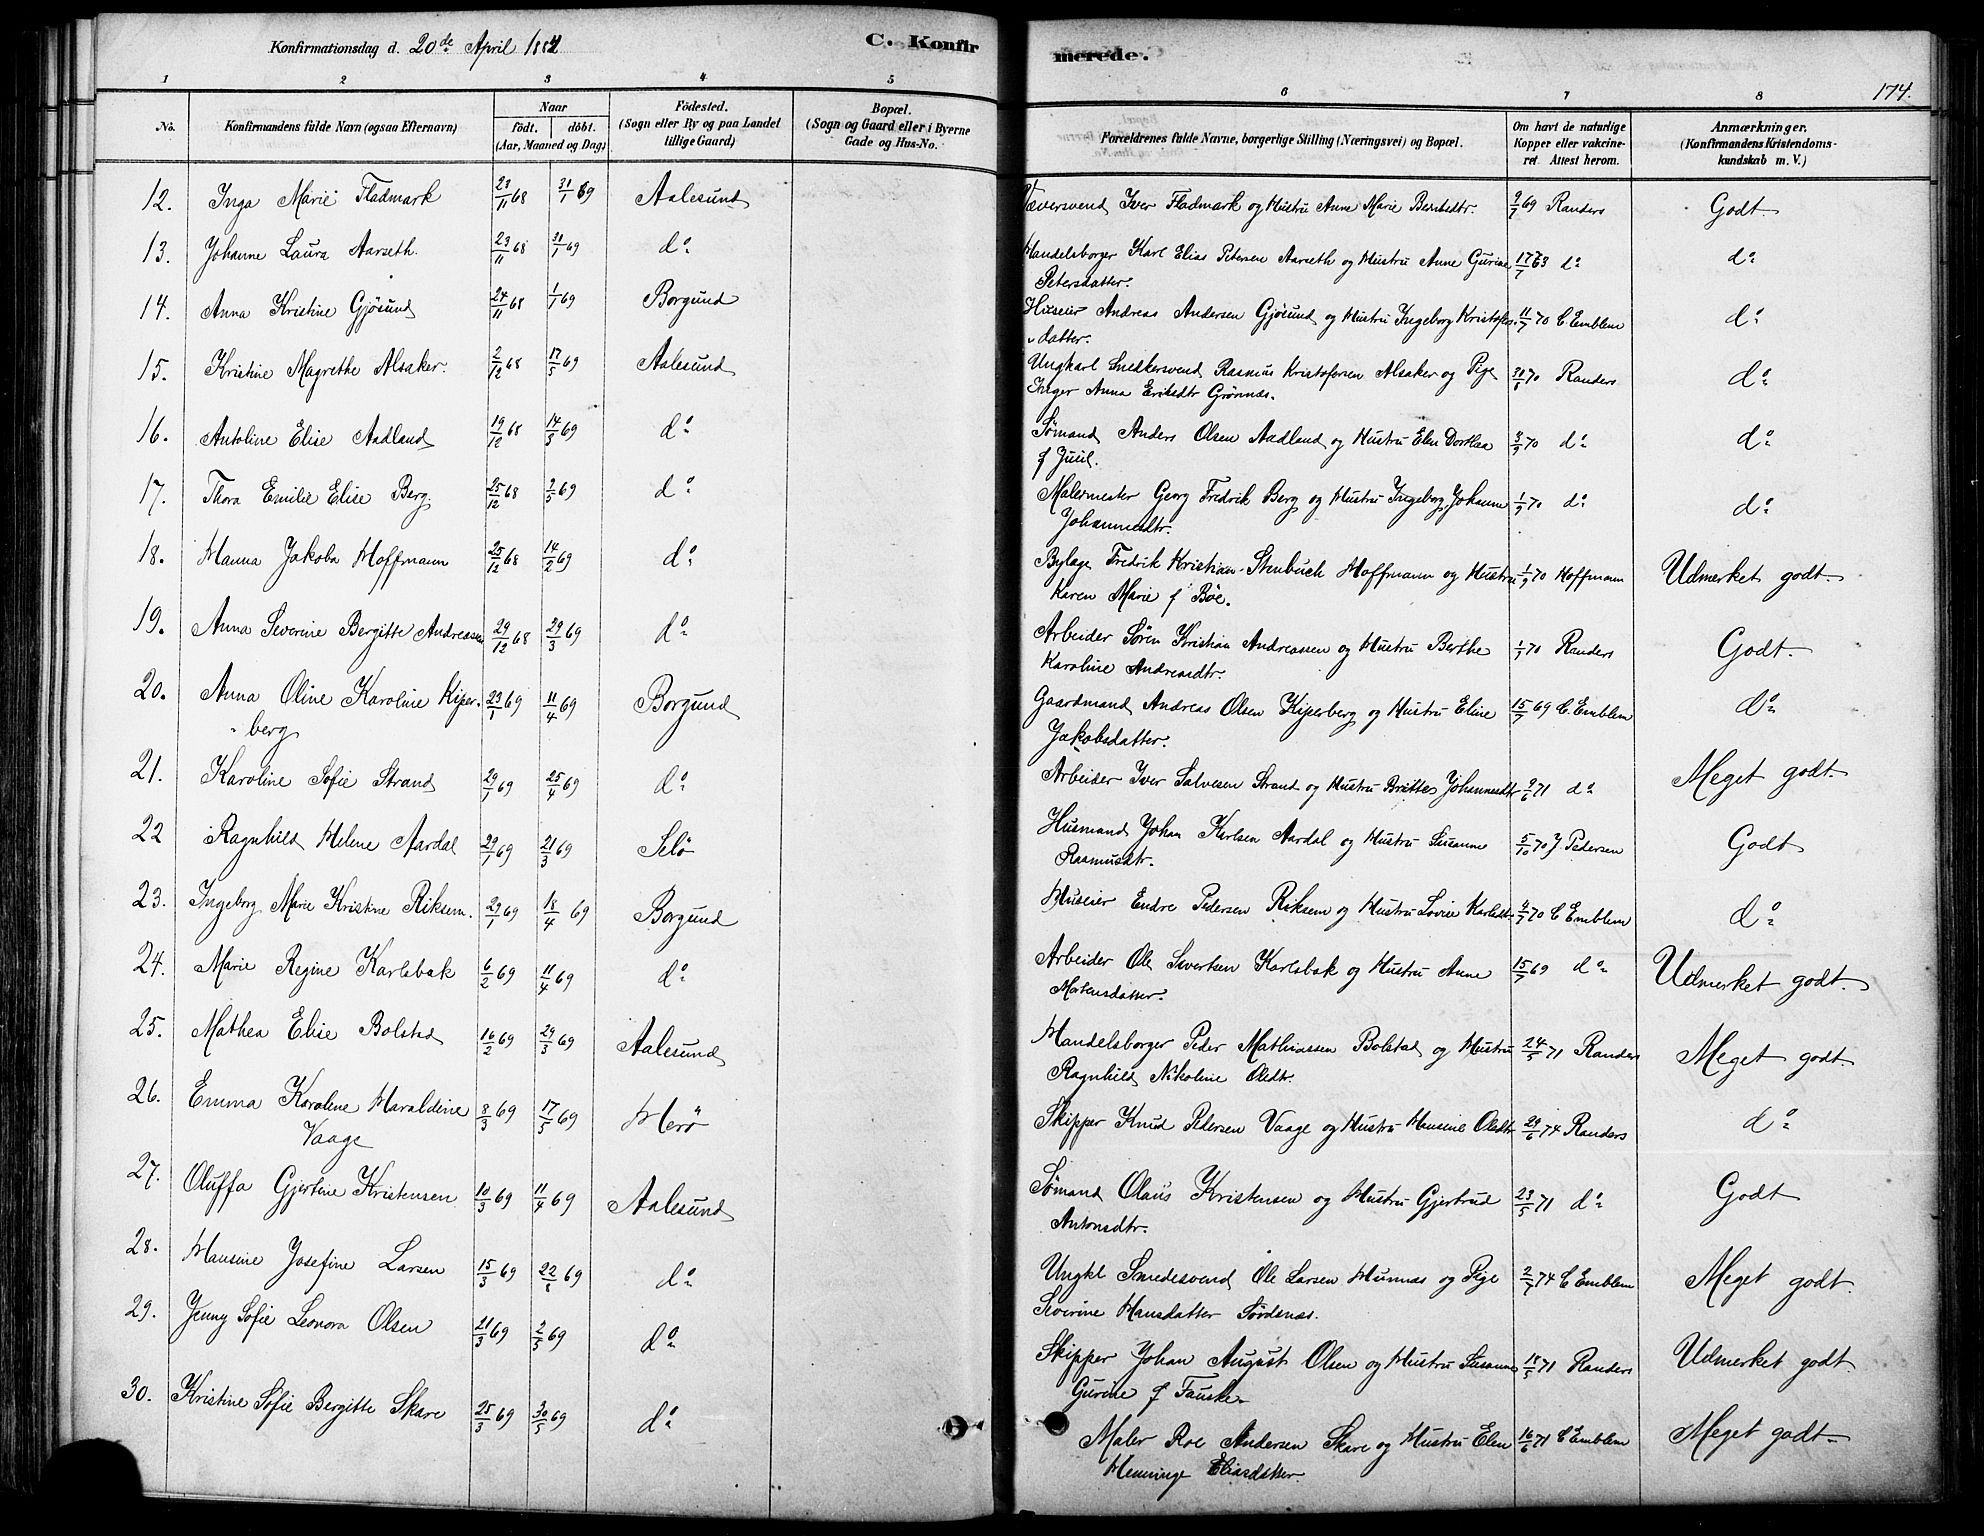 Konfirmationsdag d. 20de April 1884
C. Konfirmerede.
174.
1 2 3 4 5 6 7 8
No. Konfirmandens fulde Navn (ogsaa Efternavn) Naar født. døbt. (Aar, Maaned og Dag) Fødested. (Sogn eller By og paa Landet tillige Gaard) Bopæl. (Sogn og Gaard eller i Byerne Gade og Hus-No. Forældrenes fulde Navne, borgerlige Stilling (Næringsvei) og Bopæl. Om havt de naturlige Kopper eller vakcineret. Attest herom. Anmærkninger. (Konfirmandens Kristendomskundskab m. V.)
12. Inga Marie Fladmark 23/11 68 31/1 69 Aalesund Væversvend Iver Fladmark og Hustru Anne Marie Berntsdtr. 9/7 69 Randers Godt
13. Johanne Laura Aarseth. 23/11 68 31/1 69 do Handelsborger Karl Elias Petersen Aarseth og Hustru Anne Gurine 17/7 63 do do
Petersdatter.
14. Anna Kristine Gjøsund 24/11 68 1/1 69 Borgund Huseier Andreas Andersen Gjøsund og Hustru Ingeborg Kristofers- 11/7 70 C. Emblem do
datter.
15. Kristine Magrethe Alsaker. 2/12 68 17/5 69 Aalesund Ungkarl Snedkersvend Rasmus Kristofersen Alsaker og Pige 30/6 70 Randers do
Inger Anna Eriksdtr Grønnæs.
16. Antoline Elise Aadland 19/12 68 14/3 69 do Sømand Anders Olsen Aadland og Hustru Elen Dorthea 3/9 70 do do
f Juul.
17. Thora Emilie Elise Berg. 25/12 68 2/5 69 do Malermester Georg Fredrik Berg og Hustru Ingeborg Johanne 1/9 70 do do
Johannesdtr.
18. Hanna Jakoba Hoffmann 25/12 68 14/2 69 do Bylæge Fredrik Kristian Stenbuch Hoffmann og Hustru 1/9 70 Hoffmann Udmerket godt.
Karen Marie f Bøe.
19. Anna Severine Bergitte Andreasen 29/12 68 29/3 69 do Arbeider Søren Kristian Andreassen og Hustru Berthe 1/9 70 Randers Godt.
Karoline Andreasdtr.
20. Anna Oline Karoline Kiper- 23/1 69 11/4 69 Borgund Gaardmand Andreas Olsen Kiperberg og Hustru Eline 15/7 69 C. Emblem do
berg Jakobsdatter.
21. Karoline Sofie Strand 29/1 69 25/4 69 do Arbeider Iver Salvesen Strand og Hustru Brittes Johannesdtr 9/6 71 do Meget godt.
22 Ragnhild Helene Aardal 29/1 69 21/3 69 Selø Husmand Johan Karlsen Aardal og Hustru Susanne 5/10 70 J Pedersen Godt
Rasmusdtr.
23. Ingeborg Marie Kristine Riksem. 29/1 69 18/4 69 Borgund Huseier Endre Pedersen Riksem og Hustru Lovise Karlsdtr 4/7 70 C Emblem do
24. Marie Regine Karlsbak 6/2 69 11/4 69 do Arbeider Ole Sivertsen Karlsbak og Hustru Anne 15/7 69 do Udmerket godt.
Mortensdatter.
25. Mathea Elise Bolstad 16/2 69 29/3 69 Aalesund Handelsborger Peder Mathiassen Bolstad og Hustru 24/5 71 Randers Meget godt
Ragnhild Nikoline Olsdtr.
26. Emma Karoline Haraldine 8/3 69 17/5 69 Herø Skipper Knud Pedersen Vaage og Hustru Hansine Olsdtr 29/6 74 Randers do
Vaage
27. Oluffa Gjertine Kristensen 10/3 69 11/4 69 Aalesund Sømand Olaus Kristensen og Hustru Gjertrud 23/5 71 do Godt
Antonsdtr.
28. Hansine Josefine Larsen 15/3 69 22/8 69 do Ungkl Smedesvend Ole Larsen Hunnæs og Pige 2/7 74 C Emblem Meget godt.
Severine Hansdatter Sørdenæs.
29. Jenny Sofie Leonora Olsen 21/3 69 2/5 69 do Skipper Johan August Olsen og Hustru Susanne 18/5 71 Randers Udmerket godt
Gurine f Fauske
30. Kristine Sofie Bergitte Skare 25/3 69 30/5 69 do Maler Roe Andersen Skare og Hustru Elen 16/6 71 C Emblem Meget godt.
Henninge Eliasdatter.